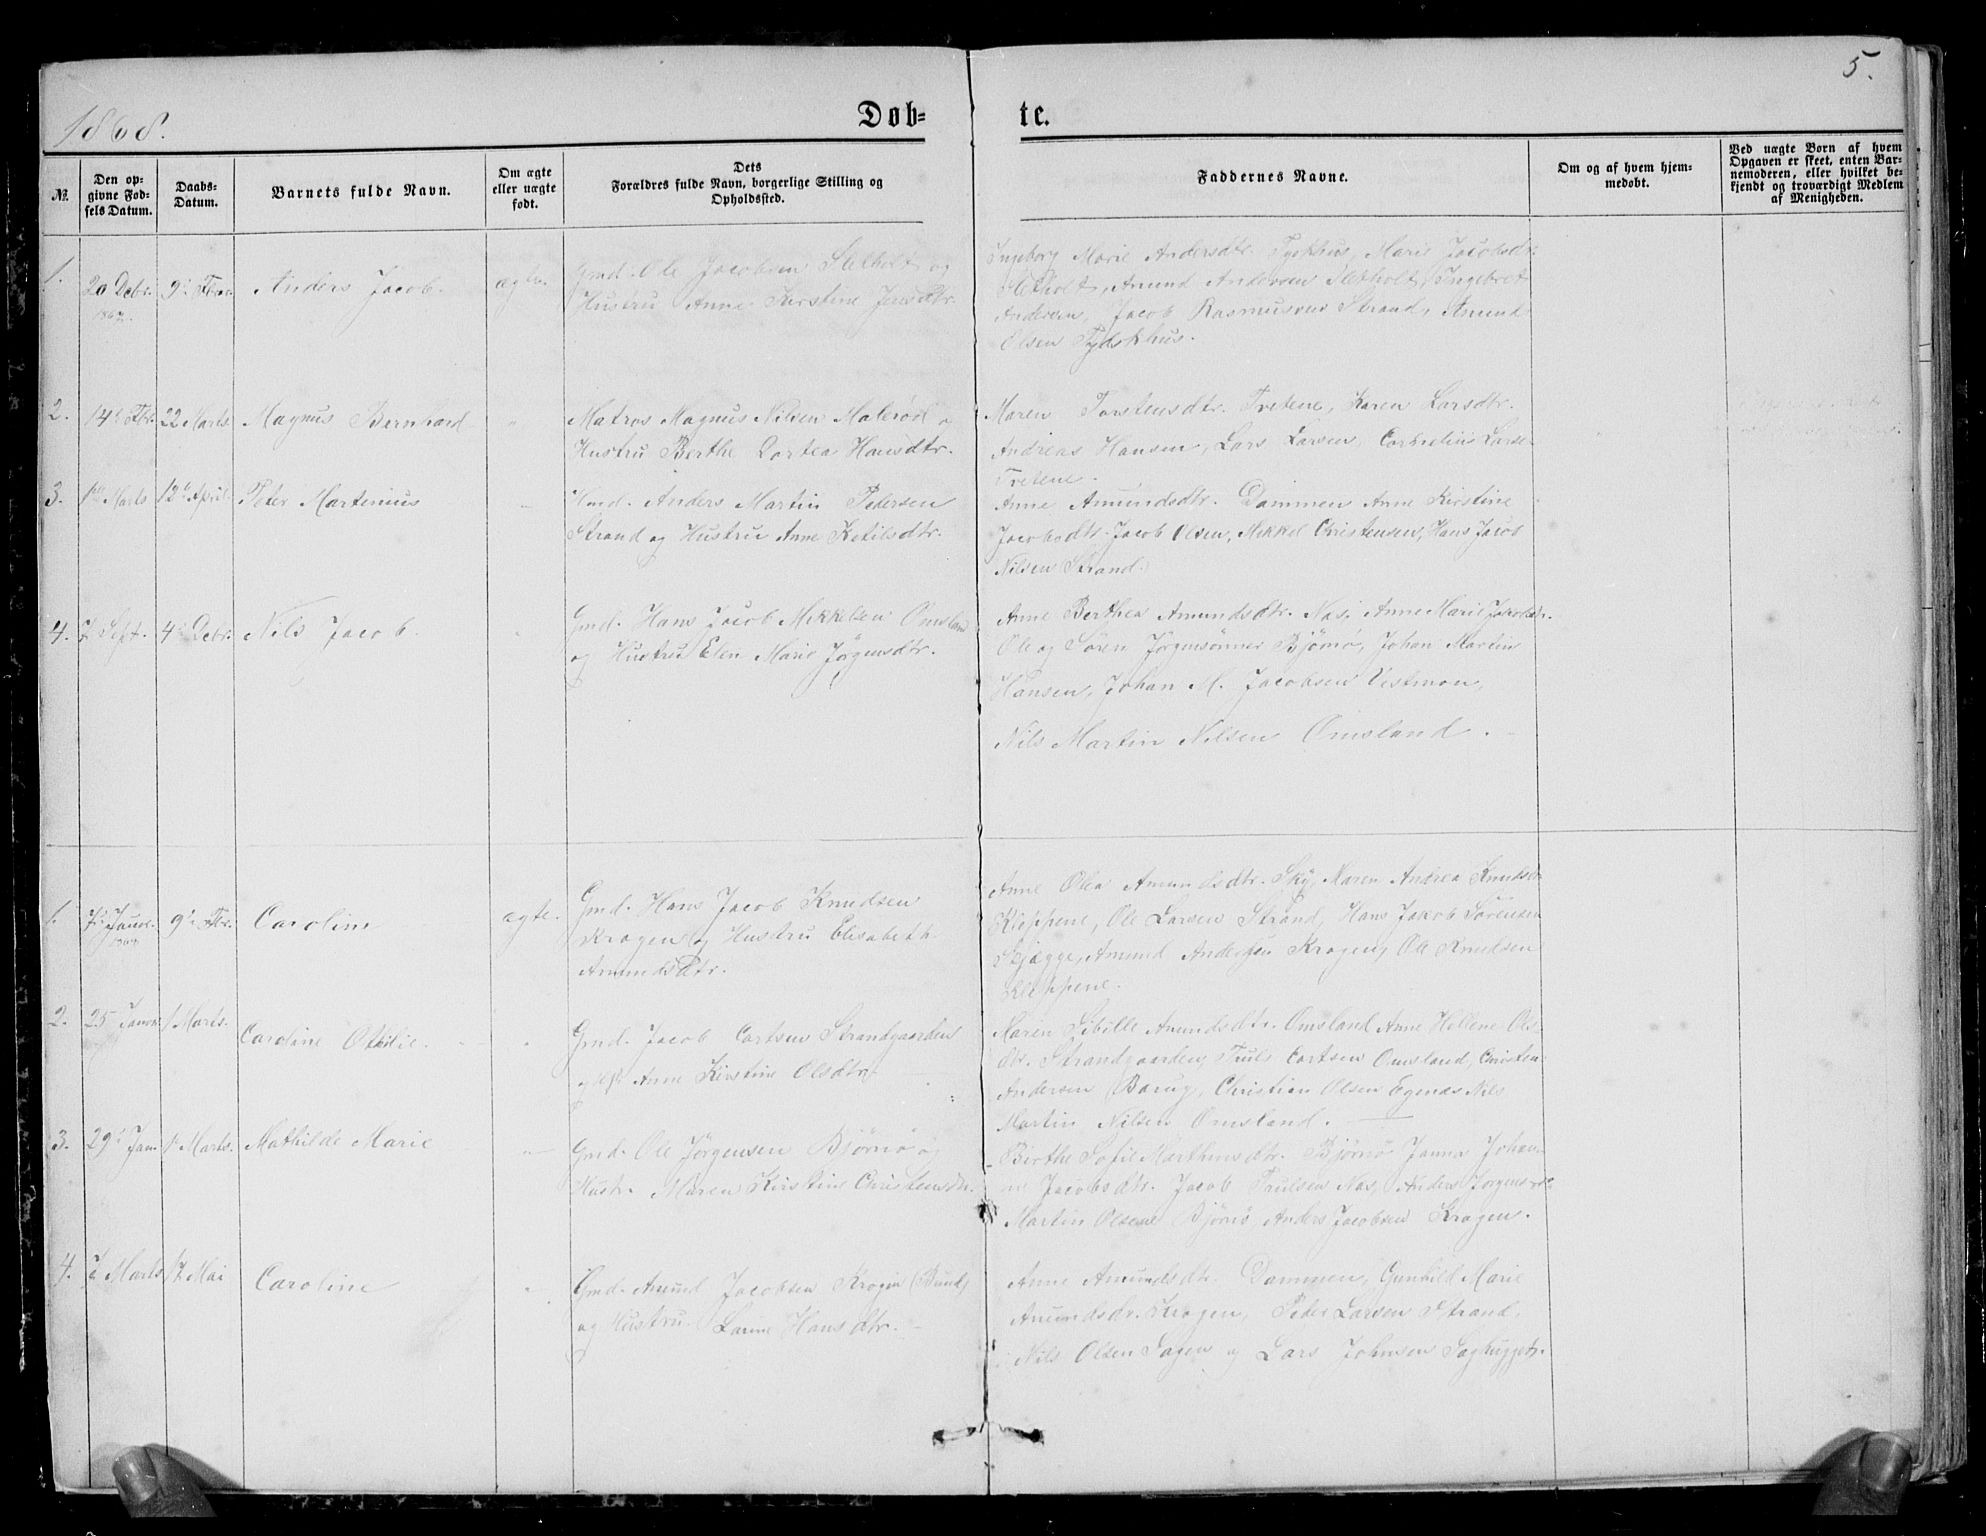 5.
1868.
Døb- te.
№
Den op-
givne Fød-
sels Datum.
Daabs-
Datum.
Barnets fulde Navn.
Om ægte
eller uægte
født.
Dets
Forældres fulde Navn, borgerlige Stilling og
Opholdssted.
Faddernes Navne.
Om og af hvem hjem-
medøbt.
Ved uægte Børn af hvem
Opgaven er skeet, enten Bar-
nemoderen, eller hvilket be-
kjendt og troværdigt Medlem
af Menigheden.
1.
20 Decbr.
1867.
9de Fbr.
Anders Jacob.
ægte.
Gmd. Ole Jacobsen og
Hustru Anne Kirstine Jensdtr.
Ingeborg Marie Andersdtr. Tyskhus, Marie Jacobsdtr.
Amund Andersen Ingebret
Andersen, Jacob Rasmussen Strand, Amund
Olsen Tydskhus.
2.
14de Fbr.
22 Marts
Magnus Bernhard
"
Matros Magnus Nilsen Malerød o
Hustru Berthe Dortea Hansdtr.
Maren Torstensdtr. Tvetene, Karen Larsdtr.
Andreas Hansen, Lars Larsen, Cornelius Larse
Tvetene.
3.
1ste Marts
12te April.
Peter Martinius
"
Hmd. Anders Martin Pedersen
Strand og Hustru Anne Ketilsdtr.
Anne Amundsdtr. Dammen Anne Kirstine
Jacobsdtr. Jacob Olsen, Mikkel Christensen, Hans Jacob
Nilsen Strand.
4.
7 Sept.
4de Decbr.
Nils Jacob.
"
Gmd. Hans Jacob Mikkelsen Omsland
og Hustru Elen Marie Jörgensdtr.
Anne Berthea Amundsdtr. Nas, Anne Marie Jakobsdtr.
Ole og Sören Jörgensönner Bjömö, Johan Martin
Hansen, Johan M. Jacobsen Vestmon,
Nils Martin Nilsen Omsland.
1.
7de Januar
9de Fbr.
Caroline
ægte.
Gmd. Hans Jacob Knudsen
Krogen og Hustru Elisabeth
Amundsdtr.
Anne Olea Amundsdtr. Sky, Maren Andrea Knudsdtr
Kleppene, Ole Larsen Strand, Hans Jakob Sörensen
Skjægge, Amund Andersen Krogen, Ole Knudsen
Kleppene.
2.
25 Januar
1 Marts.
Caroline Otilie.
"
Gmd. Jacob Cortsen Strandgaarden
og Hst. Anne Kirstine Olsdtr.
Maren Sibille Amundsdtr. Omsland Anne Hellene Ols-
dtr. Strandgaarden, Truls Cortsen Omsland, Christen
Andersen Barug, Christian Olsen Egenæs Nils
Martin Nilsen Omsland.
3.
29de Jan.
1 Marts.
Mathilde Marie
"
Gmd. Ole Jörgensen Bjömö og
Hustr. Maren Kirstine Christensdtr.
Birthe Sofie Marthinsdtr. Bjömö Janna Johan-
ne Jacobsdtr. Jacob Trulsen Nas, Anders Jörgensen
Martin Olsen Bjömö Anders Jacobsen Krogen.
4.
7 Marts
17 Mai
Caroline
"
Gmd. Amund Jacobsen Krogen (Bund)
og Hustru Larine Hansdtr.
Anne Amundsdtr. Dammen, Gunhild Marie
Amundsdtr. Krogen, Peder Larsen Strand
Nils Olsen Sagen og Lars Johnsen Saghugget.